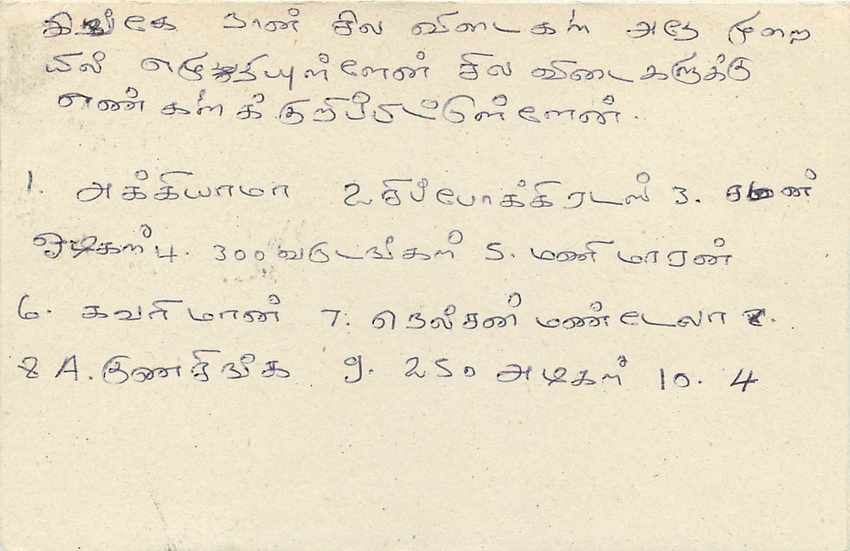 இங்கே நான் சில விடைகள் அதே முறை
யில் எழுதியுள்ளேன் சில விடைகளுக்கு
எண்கள்க் குறிப்பிட்டுள்ளேன்.
1. அக்கியாமா 2 சிப்போக்கிரடஸ் 3.
4. 300 வருடங்கள் 5. மணிமாறன்
6. கவரிமான் 7. நெல்சன் மண்டேலா
8 A. குணசிங்க 9. 250 அடிகள் 10. 4